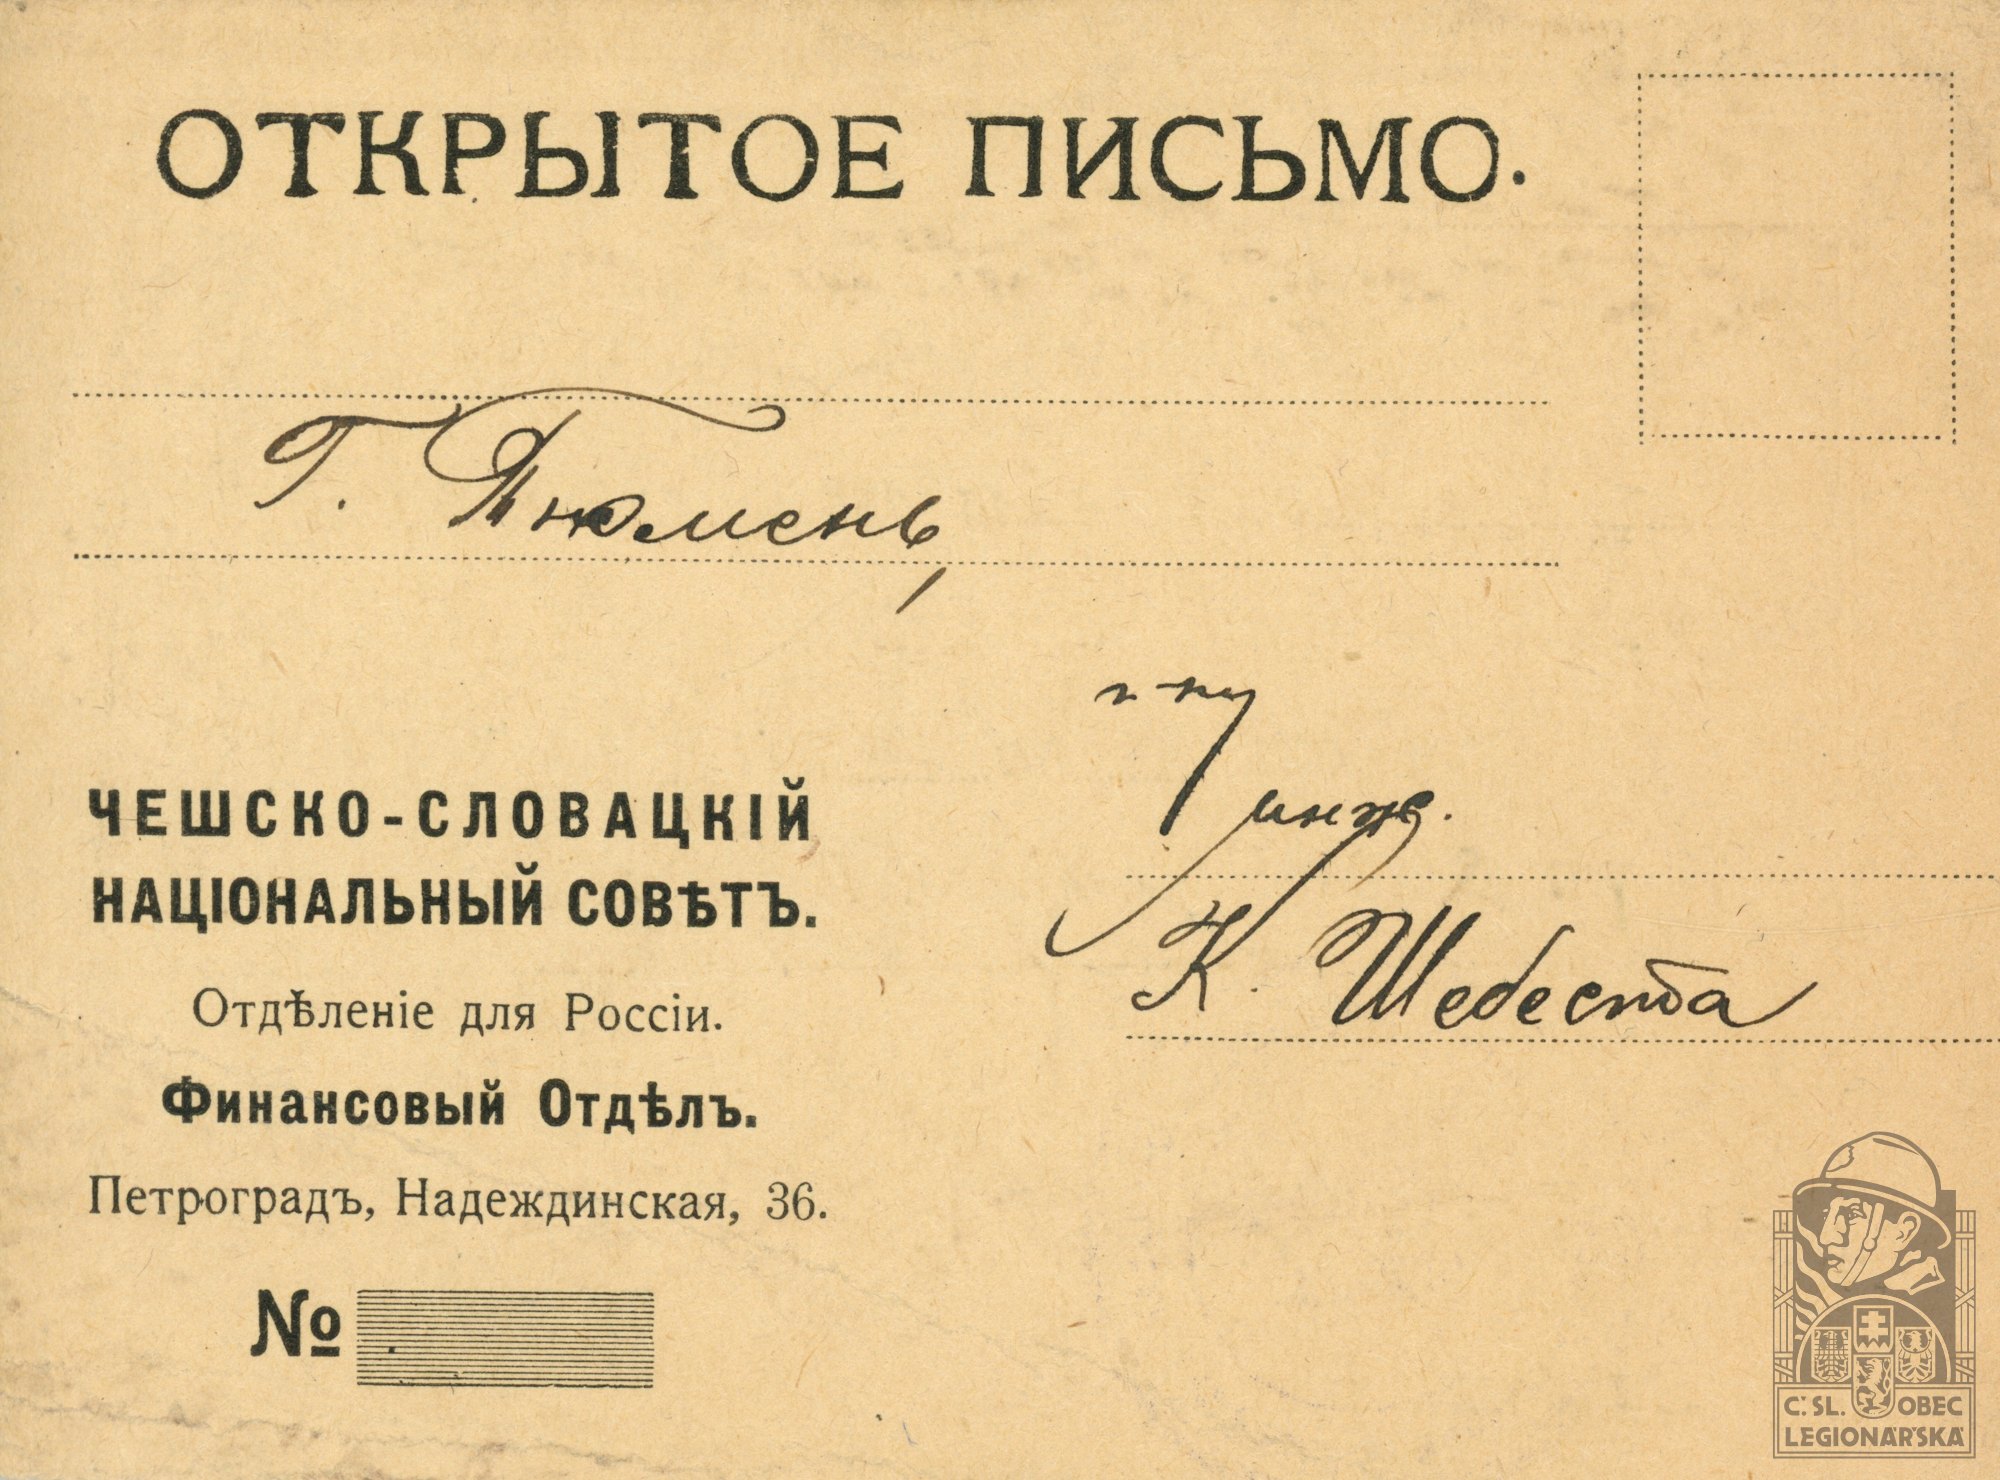 ОТКРЫТОЕ ПИСЬМО.
Г. Тюмень,
г-ну
инж.
К. Шебеста
ЧЕШСКО-СЛОВАЦКІЙ
НАЦІОНАЛЬНЫЙ СОВѢТЪ.
Отдѣленіе для Россіи.
Финансовый Отдѣлъ.
Петроградъ, Надеждинская, 36.
№
Č.SL. OBEC
LEGIONÁŘSKÁ